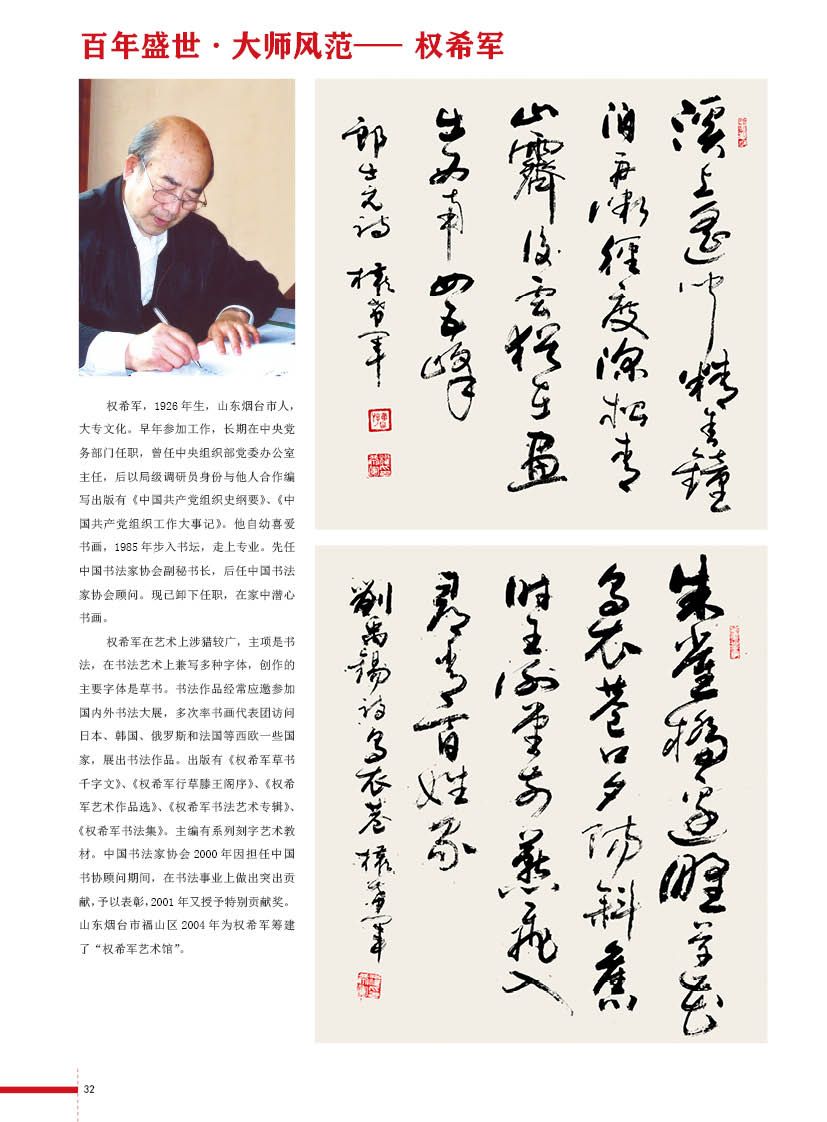 百年盛世·大师风范—— 权希军
权希军，1926 年生，山东烟台市人，
大专文化。早年参加工作，长期在中央党
务部门任职，曾任中央组织部党委办公室
主任，后以局级调研员身份与他人合作编
写出版有《中国共产党组织史纲要》、《中
国共产党组织工作大事记》。他自幼喜爱
书画，1985 年步入书坛，走上专业。先任
中国书法家协会副秘书长，后任中国书法
家协会顾问。现已卸下任职，在家中潜心
书画。
权希军在艺术上涉猎较广，主项是书
法，在书法艺术上兼写多种字体，创作的
主要字体是草书。书法作品经常应邀参加
国内外书法大展，多次率书画代表团访问
日本、韩国、俄罗斯和法国等西欧一些国
家，展出书法作品。出版有《权希军草书
千字文》、《权希军行草滕王阁序》、《权希
军艺术作品选》、《权希军书法艺术专辑》、
《权希军书法集》。主编有系列刻字艺术教
材。中国书法家协会 2000 年因担任中国
书协顾问期间，在书法事业上做出突出贡
献，予以表彰，2001 年又授予特别贡献奖。
山东烟台市福山区 2004 年为权希军筹建
了“权希军艺术馆”。
溪上遥闻精舍鐘
泊舟微徑度深松青
山霽後雲猶在畫
出西南四五峰
郎士元詩 權希軍
朱雀橋邊野草花
烏衣巷口夕陽斜舊
時王謝堂前燕飛入
尋常百姓家
劉禹錫詩烏衣巷 權希軍
32